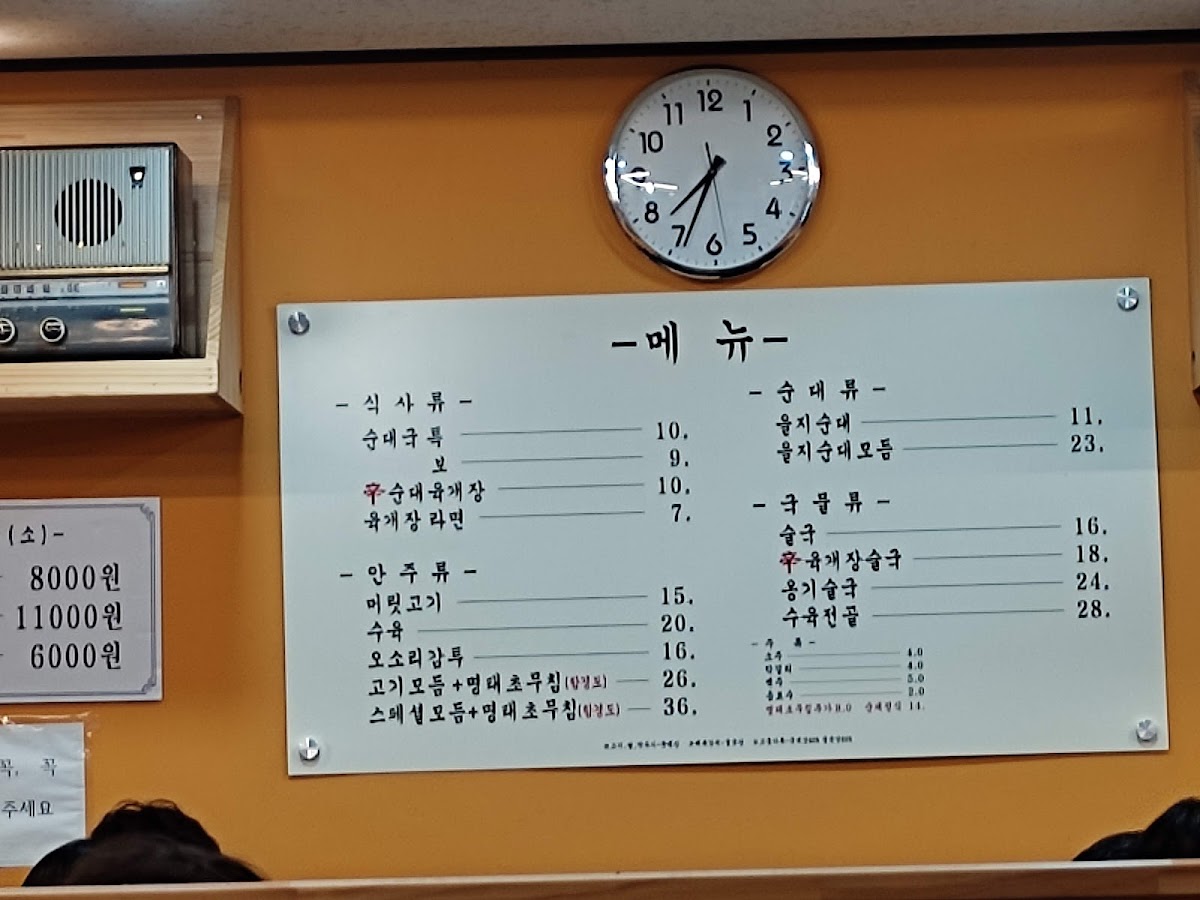 12
1
2
3
4
5
6
7
8
10
11
-메 뉴-
- 식 사 류 -
순대국 특 10.
보 9.
辛순대육개장 10.
육개장라면 7.
- 안 주 류 -
머릿고기 15.
수육 20.
오소리감투 16.
고기모듬+명태초무침(함경도) 26.
스페셜모듬+명태초무침(함경도) 36.
- 순 대 류 -
을지순대 11.
을지순대모듬 23.
- 국 물 류 -
술국 16.
辛육개장술국 18.
옹기술국 24.
수육전골 28.
- 주 류 -
소주 4.0
막걸리 4.0
맥주 5.0
음료수 2.0
명태초무침추가 8.0 순대접시 14.
(소)-
8000원
11000원
6000원
꼭, 꼭
주세요